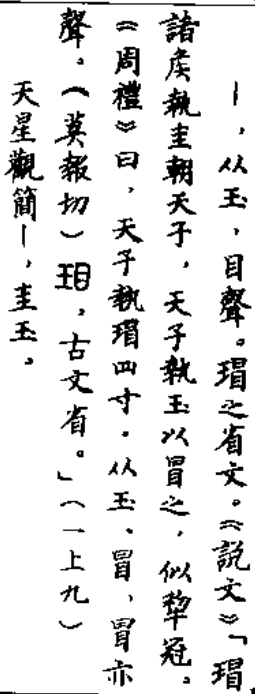 ｜，从玉，目聲。瑁之省文。《說文》「瑁
諸侯執圭朝天子，天子執玉以冒之，似犂冠。
《周禮》曰，天子執瑁四寸。从玉、冒，冒亦
聲。（莫報切）珇，古文省。」（一上九）
天星觀簡｜，圭玉。